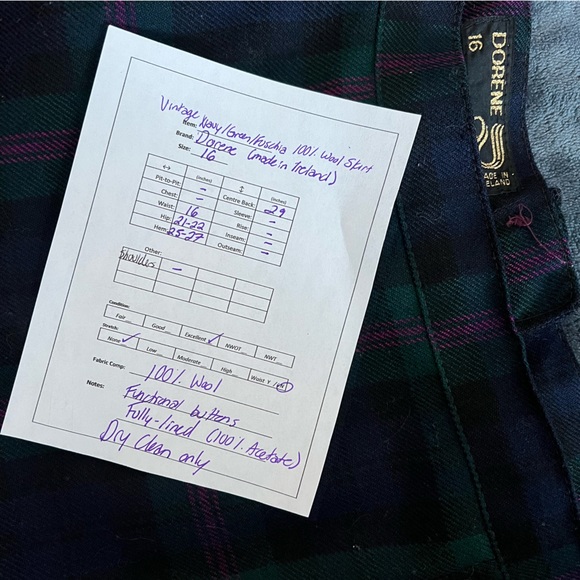 Vintage Navy/Green/Fuschia 100% Wool Skirt
Item:
Brand: Dorene (made in Ireland)
Size: 16
↔ (inches) ↕ (inches)
Pit-to-Pit: - Centre Back: 29
Chest: - Sleeve: -
Waist: 16 Rise: -
Hip: 21-22 Inseam: -
Hem: 25-27 Outseam: -
Other:
Shoulders -
Condition:
Fair Good Excellent ✓ NWOT NWT
Stretch:
None ✓ Low Moderate High Waist Y / N
Fabric Comp: 100% Wool
Notes: Functional buttons
Fully-lined (100% Acetate)
Dry Clean only
DORENE
16
MADE IN